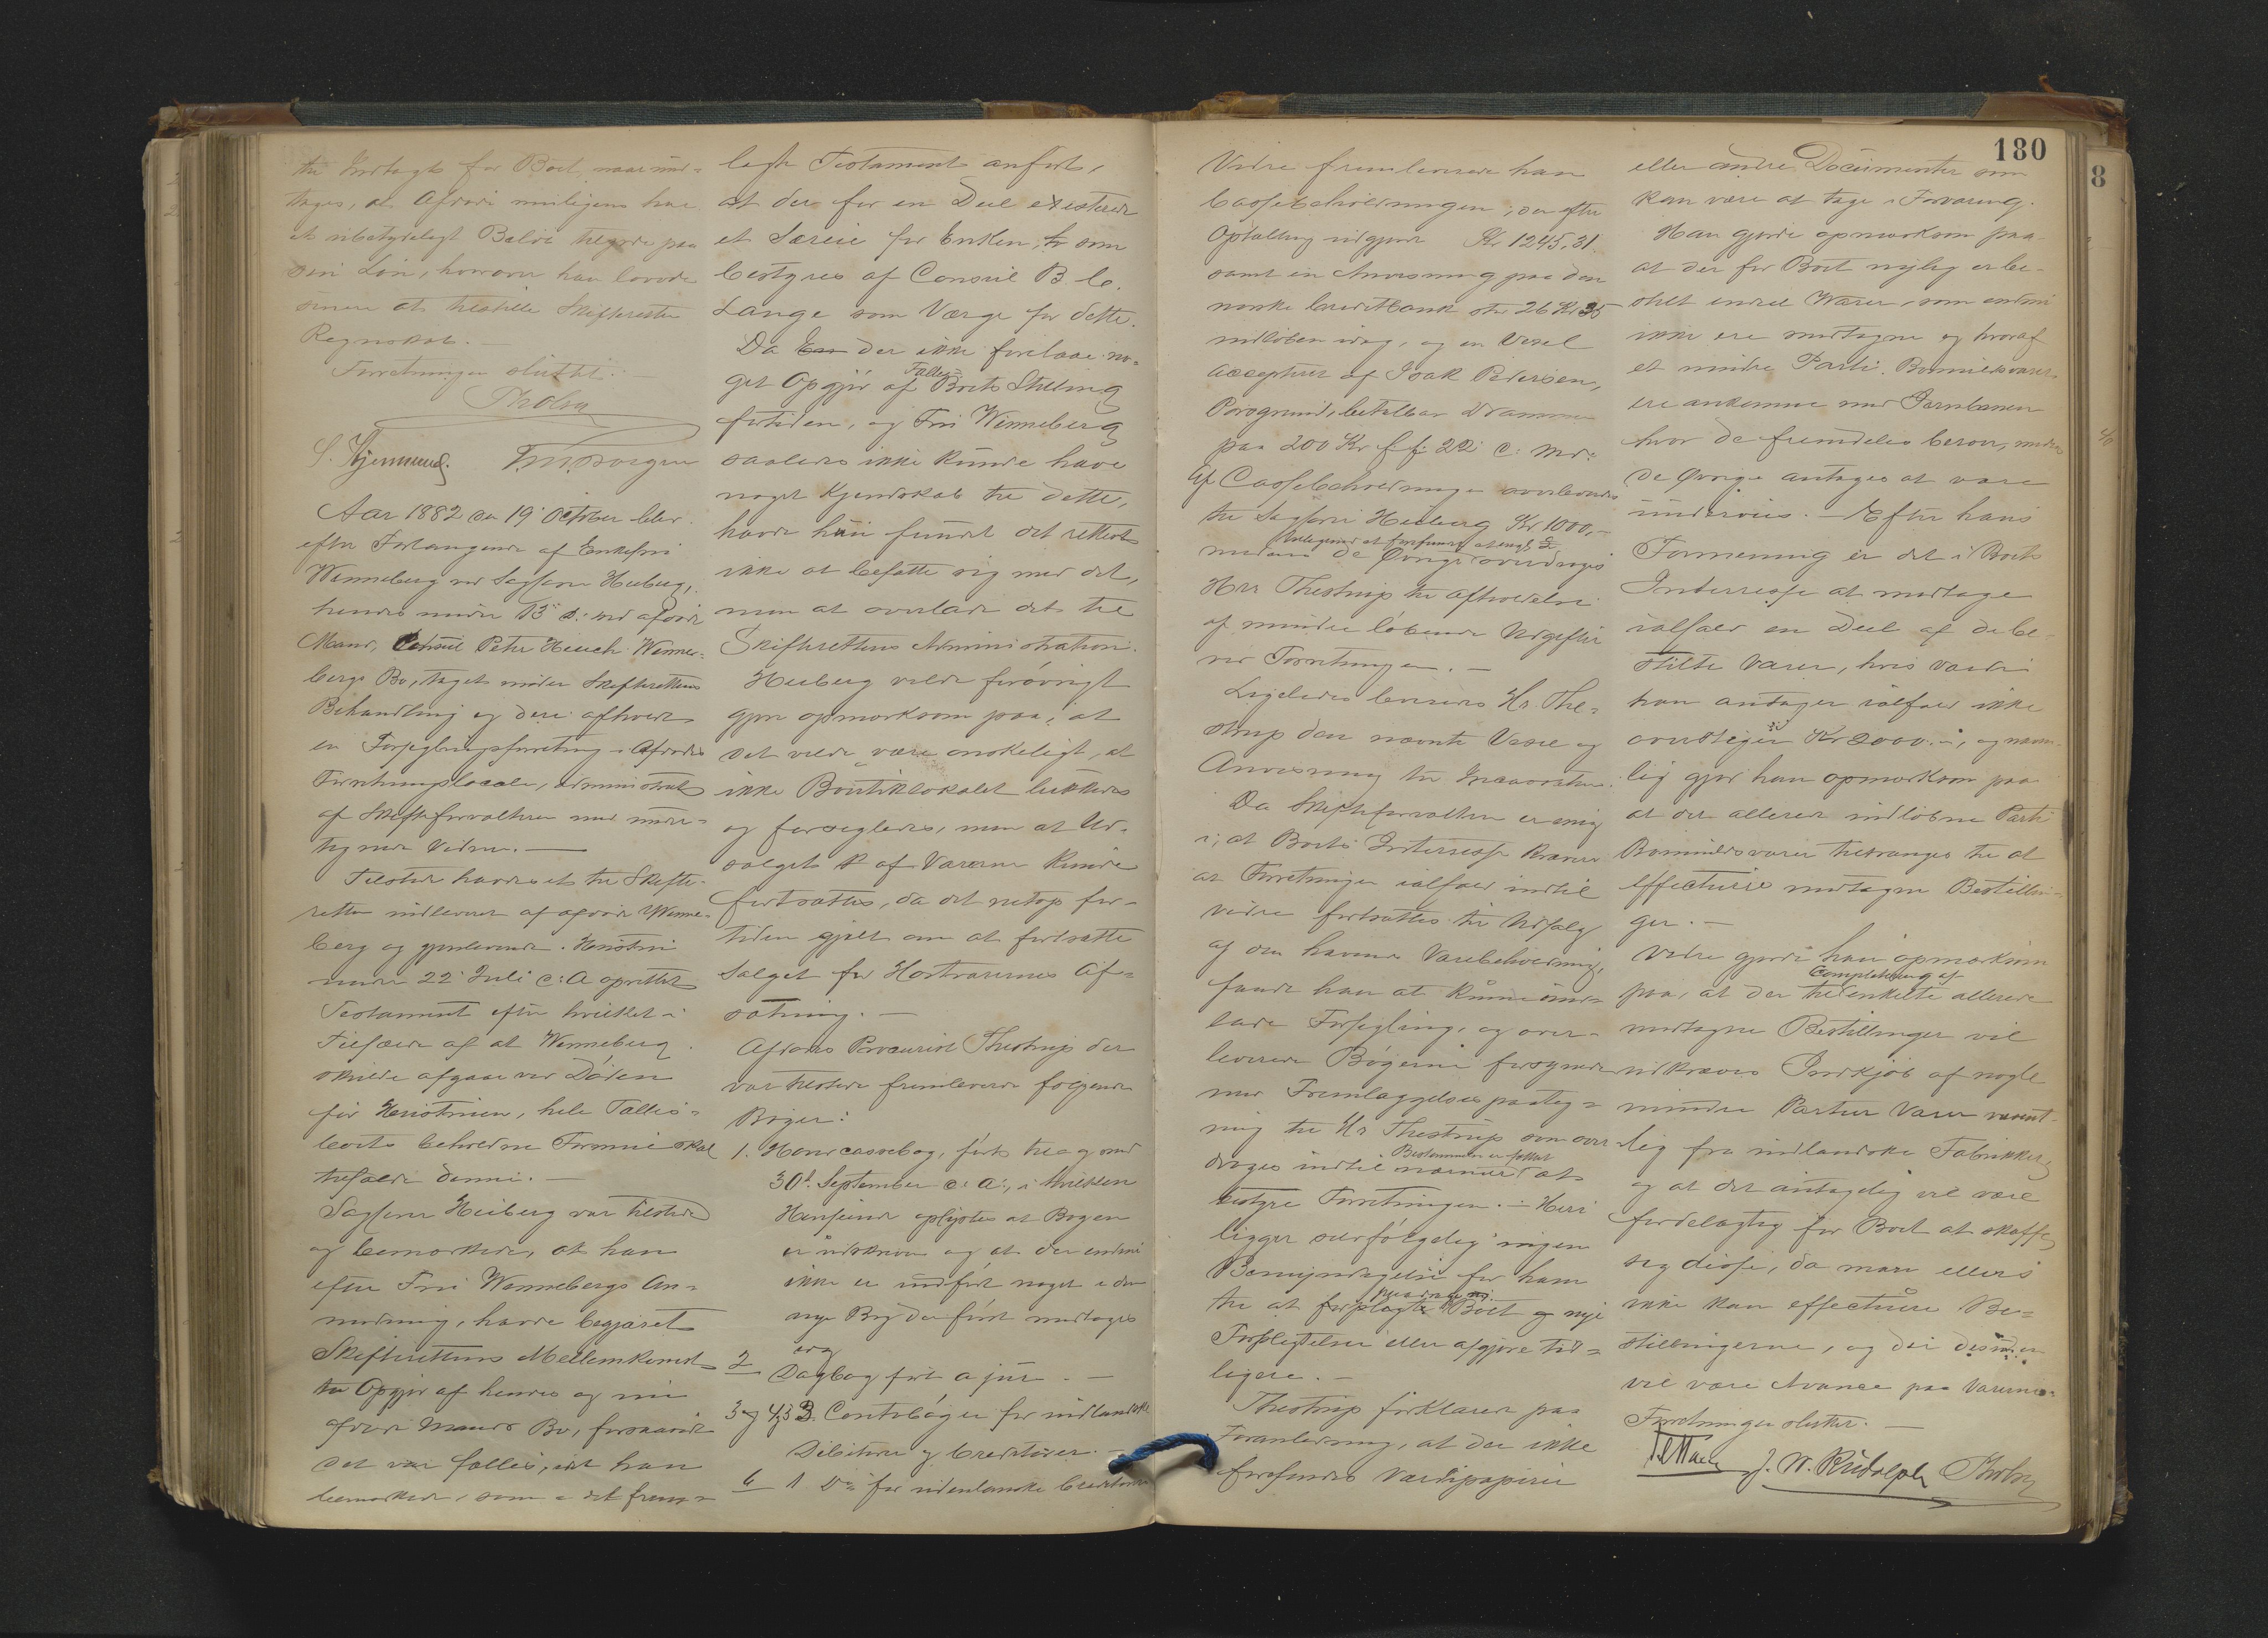 til Indtægt for Boet, naar und-
tages, at Afdøde muligens har
et ubetydeligt Beløb tilgode paa
sin Løn, hvorover han lovede
senere at tilstille Skifteretten
Regnskab. —
Forretningen sluttet. —
Tholsen
S. Hjermund.
Aar 1882 den 19' October blev
efter Forlangende af Enkefru
Wenneberg ved Sagfører Heiberg,
hendes under 13de d: ved afdøde
Mand, Consul Peter Heuch Wenne-
bergs Bo, taget under Skifterettens
Behandling og deri afholdt
en Forseglingsforretning i Afdødes
Forretningslocale, administreret
af Skifteforvalteren med under-
tegnede Vidner. —
Tilstede havdes et til Skifte-
retten indleveret af afdøde Wenne-
berg og gjenlevende Hustru
under 22' Juli c: A oprettet
Testament efter hvilket i
Tilfælde af at Wenneberg
skulde afgaa ved Døden
før Hustruen, hele Fælles-
boets beholdne Formue skal
tilfalde denne. —
Sagfører Heiberg var tilstede
og bemærkede, at han
efter Fru Wennebergs An-
modning, havde begjæret
Skifterettens Mellemkomst
til Opgjør af hendes og
afdøde Mands Bo, forsaavidt
det var fælles, idet han
bemærkede, som i det frem-
lagte Testament anført,
at der for en Deel existerer
et Særeie for Enken, som
bestyres af Consul B. C.
Lange som Værge for dette.
Da der ikke forelaae no-
get Opgjør af Fælles-Boets Stilling
fortiden, og Fru Wenneberg
saaledes ikke kunde have
noget Kjendskab til dette,
havde hun fundet det rettest
ikke at befatte sig med det,
men at overlade det til
Skifterettens Administration.
Heiberg vilde forøvrigt
gjøre opmærksom paa, at
det vilde være ønskeligt, at
ikke Boutiklokalet lukkedes
og forsegledes, men at Ud-
salget af Varerne kunde
fortsættes, da det netop for-
tiden gjalt om at fortsætte
Salget for Høstvarernes Af-
sætning. —
Afdødes Procurist Thestrup der
var tilstede fremleverede følgende
Bøger:
1. Hovedcassebog, ført til og med
30te September c: A:, i hvilken
Henseende oplystes at Bogen
er udskreven og at der endnu
ikke er indført noget i den
nye Bog der først modtages
idag
2 Dagbog ført a jour. —
3 og 4, 5 3 Contobøger for indlandske
Debitorer og Creditorer. —
6 1 Do for udenlandske Creditorer
180
Videre fremleverede han
Cassebeholdningen; der efter
Optælling udgjorde Kr 1245,31
samt en Anvisning paa den
norske Creditbank stor 26 Kr 35
indløben idag, og en Vexel
accepteret af Isak Pedersen,
Porsgrund, betalbar Drammen
paa 200 Kr f. f. 22 c: Md.
Af Cassebeholdningen overleveredes
til Sagfører Heiberg Kr. 1000,–
medens de Øvrige overdroges
Hrr Thestrup til Afholdelse
af mindre løbende Udgifter
ved Forretningen. —
Ligeledes leveredes Hr. The-
strup den nævnte Vexel og
Anvisning til Incassation.
Da Skifteforvalteren er enig
i, at Boets Interesse kræver
at Forretningen ialfald indtil
videre fortsættes til Udsalg
af den havende Varebeholdning,
fandt han at kunne und-
lade Forsegling, og over-
leverede Bøgerne forsynede
med Fremlæggelsespaateg-
ning til Hr Thestrup som over-
droges indtil nærmere Bestemmelse er fattet at
bestyre Forretningen. – Heri
ligger selvfølgelig ingen
Bemyndigelse for ham
til at Boet nye
Forpligtelser eller afgjøre tid-
ligere. —
Thestrup forklarede paa
Foranledning, at der ikke
forefandtes Værdipapirer
eller andre Documenter som
kan være at tage i Forvaring.
Han gjorde opmærksom paa
at der for Boet nylig er be-
stilt endeel Varer, som endnu
ikke ere modtagne og hvoraf
et mindre Parti Bomuldsvarer
ere ankomne med Jernbanen
hvor de fremdeles beroer, medens
de Øvrige antages at være
underveis. — Efter hans
Formening er det i Boets
Interresse at modtage
ialfald en Deel af de be-
stilte Varer, hvis Værdi
han antager ialfald ikke
overstiger Kr 2000.–, og navn-
lig gjør han opmærksom paa
at det allerede indløbne Parti
Bomuldsvarer tiltrænges til at
effectuere modtagne Bestillin-
ger. —
Videre gjorde han opmærksom
paa, at der til Completering af enkelte allerede
modtagne Bestillinger vil
udkræves Indkjøb af nogle
mindre Partier Varer navnt-
lig fra indlandske Fabrikker,
og at det antagelig vil være
fordelagtig for Boet at skaffe
sig disse, da man ellers
ikke kan effectuere Be-
stillingerne, og der desuden
vil være Avance paa Varerne.
Forretningen sluttet. —
J. N. Rudolph Tholsen
8